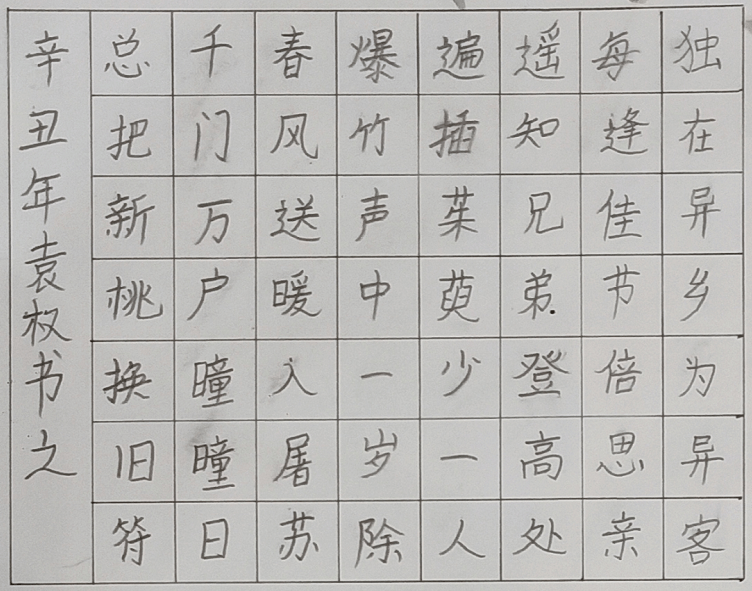 独在异乡为异客
每逢佳节倍思亲
遥知兄弟登高处
遍插茱萸少一人
爆竹声中一岁除
春风送暖入屠苏
千门万户曈曈日
总把新桃换旧符
辛丑年袁权书之